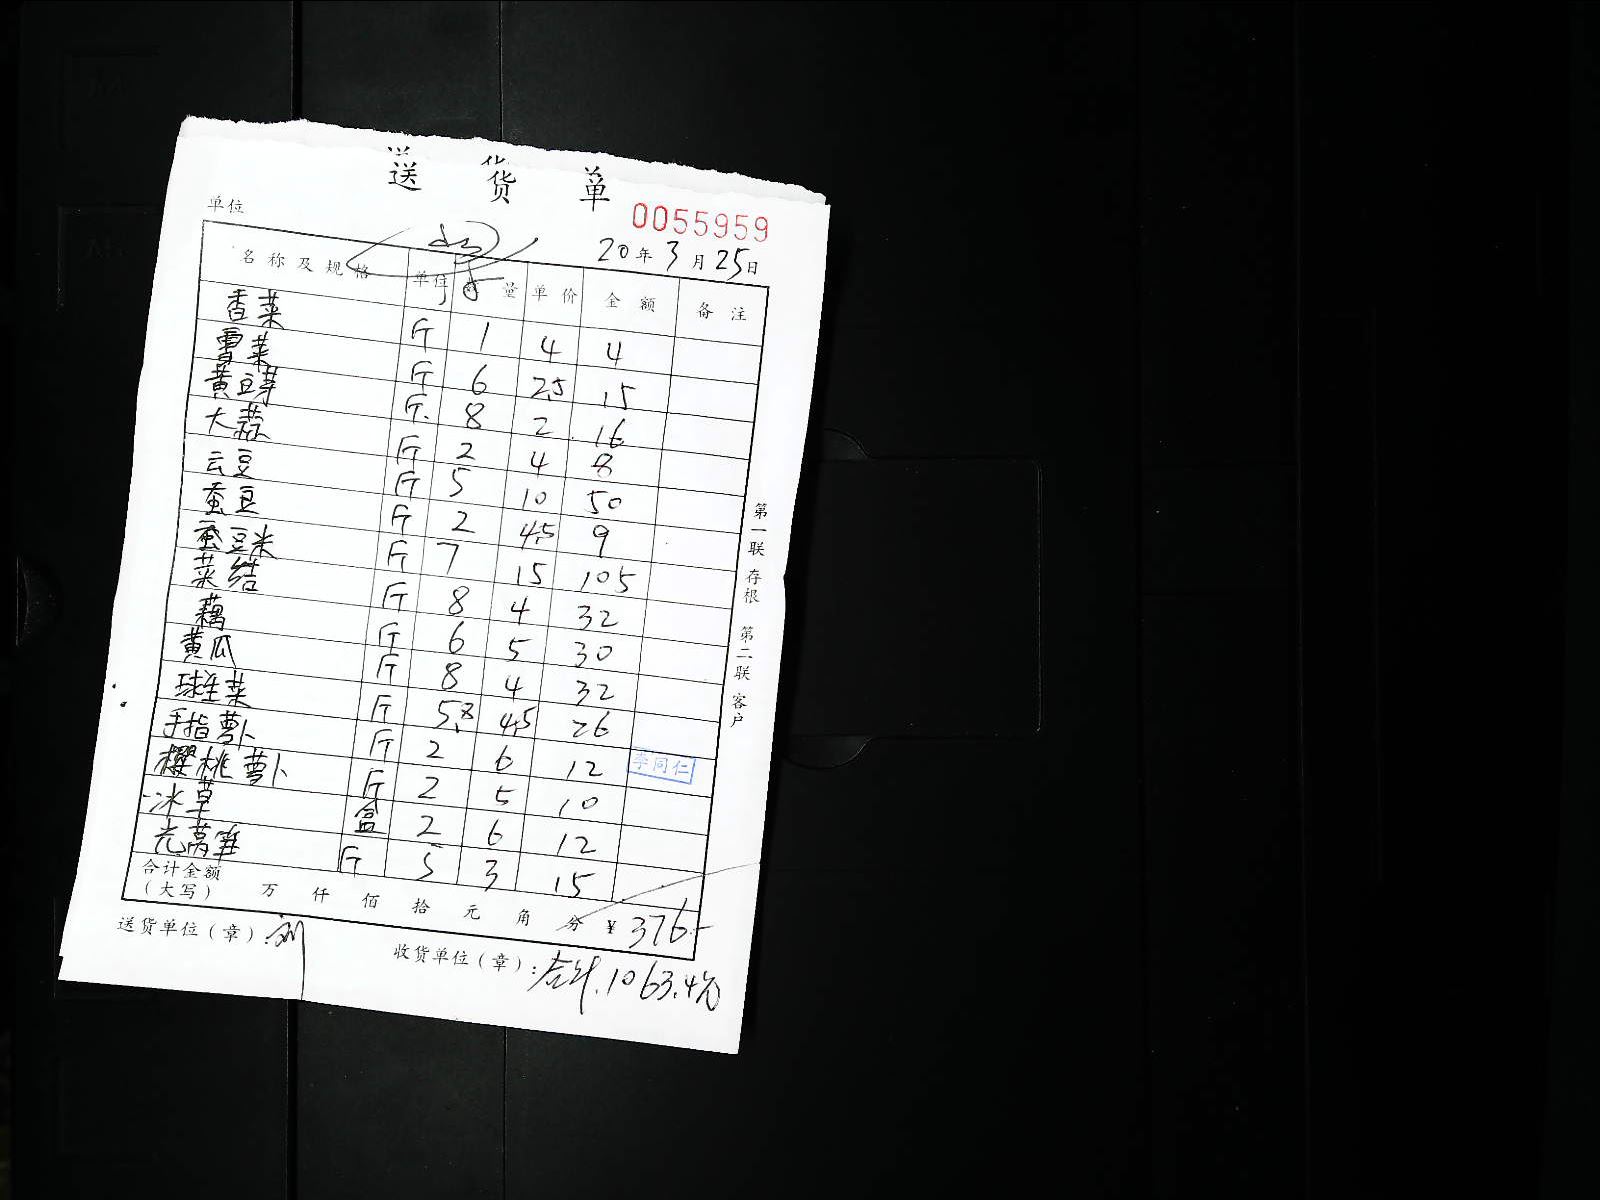 送货单
单位
0055959
20年3月25日
名称及规格 单位 数量 单价 金额 备注
香菜 斤 1 4 4
雪菜 斤 6 2.5 15
黄豆芽 斤 8 2 16
大蒜 斤 2 4 8
云豆 斤 5 10 50
蚕豆 斤 2 4.5 9
蚕豆米 斤 7 15 105
菜结 斤 8 4 32
藕 斤 6 5 30
黄瓜 斤 8 4 32
球生菜 斤 5.8 4.5 26
手指萝卜 斤 2 6 12
樱桃萝卜 斤 2 5 10
冰草 盒 2 6 12
光莴笋 斤 5 3 15
李同仁
合计金额
(大写) 万 仟 佰 拾 元 角 分 ¥376.-
送货单位(章): 刘
收货单位(章): 合计.1063.4元
第一联 存根 第二联 客户